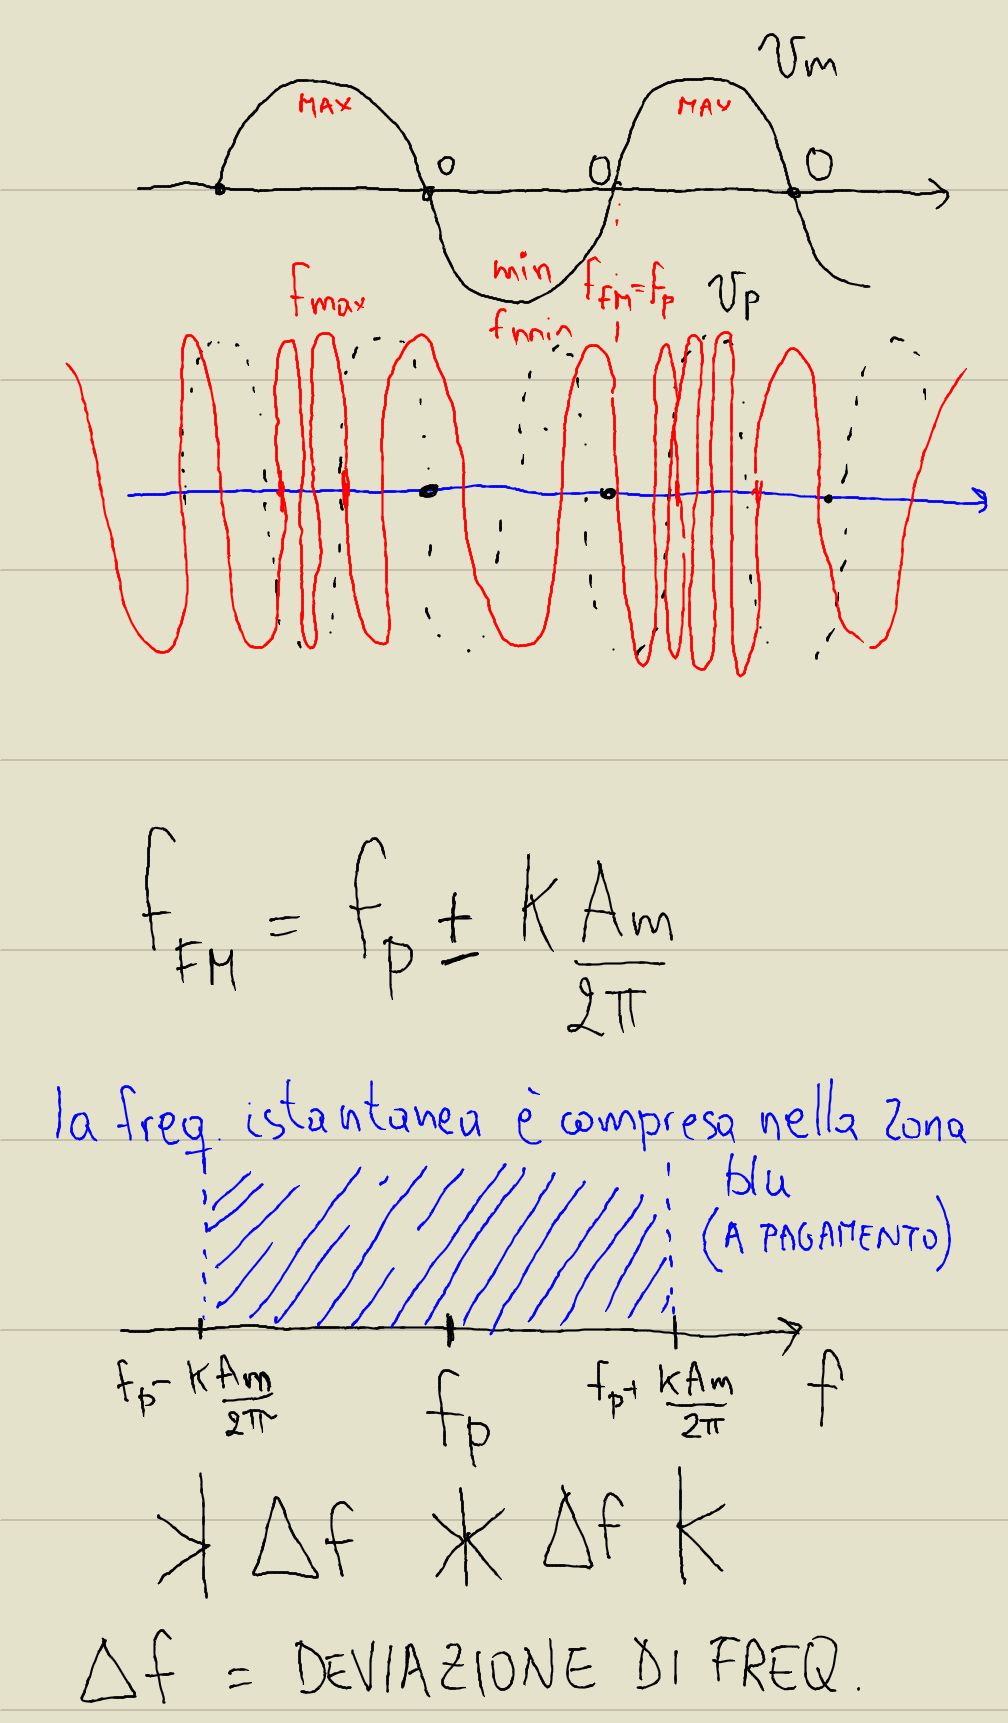 Vm
MAX MAX
0 0 0
min
fmax fFM=fp Vp
fmin
fFM = fp ± K Am
2π
la freq. istantanea è compresa nella zona
blu
(A PAGAMENTO)
fp- KAm fp fp+ KAm f
2π 2π
Δf Δf
Δf = DEVIAZIONE DI FREQ.